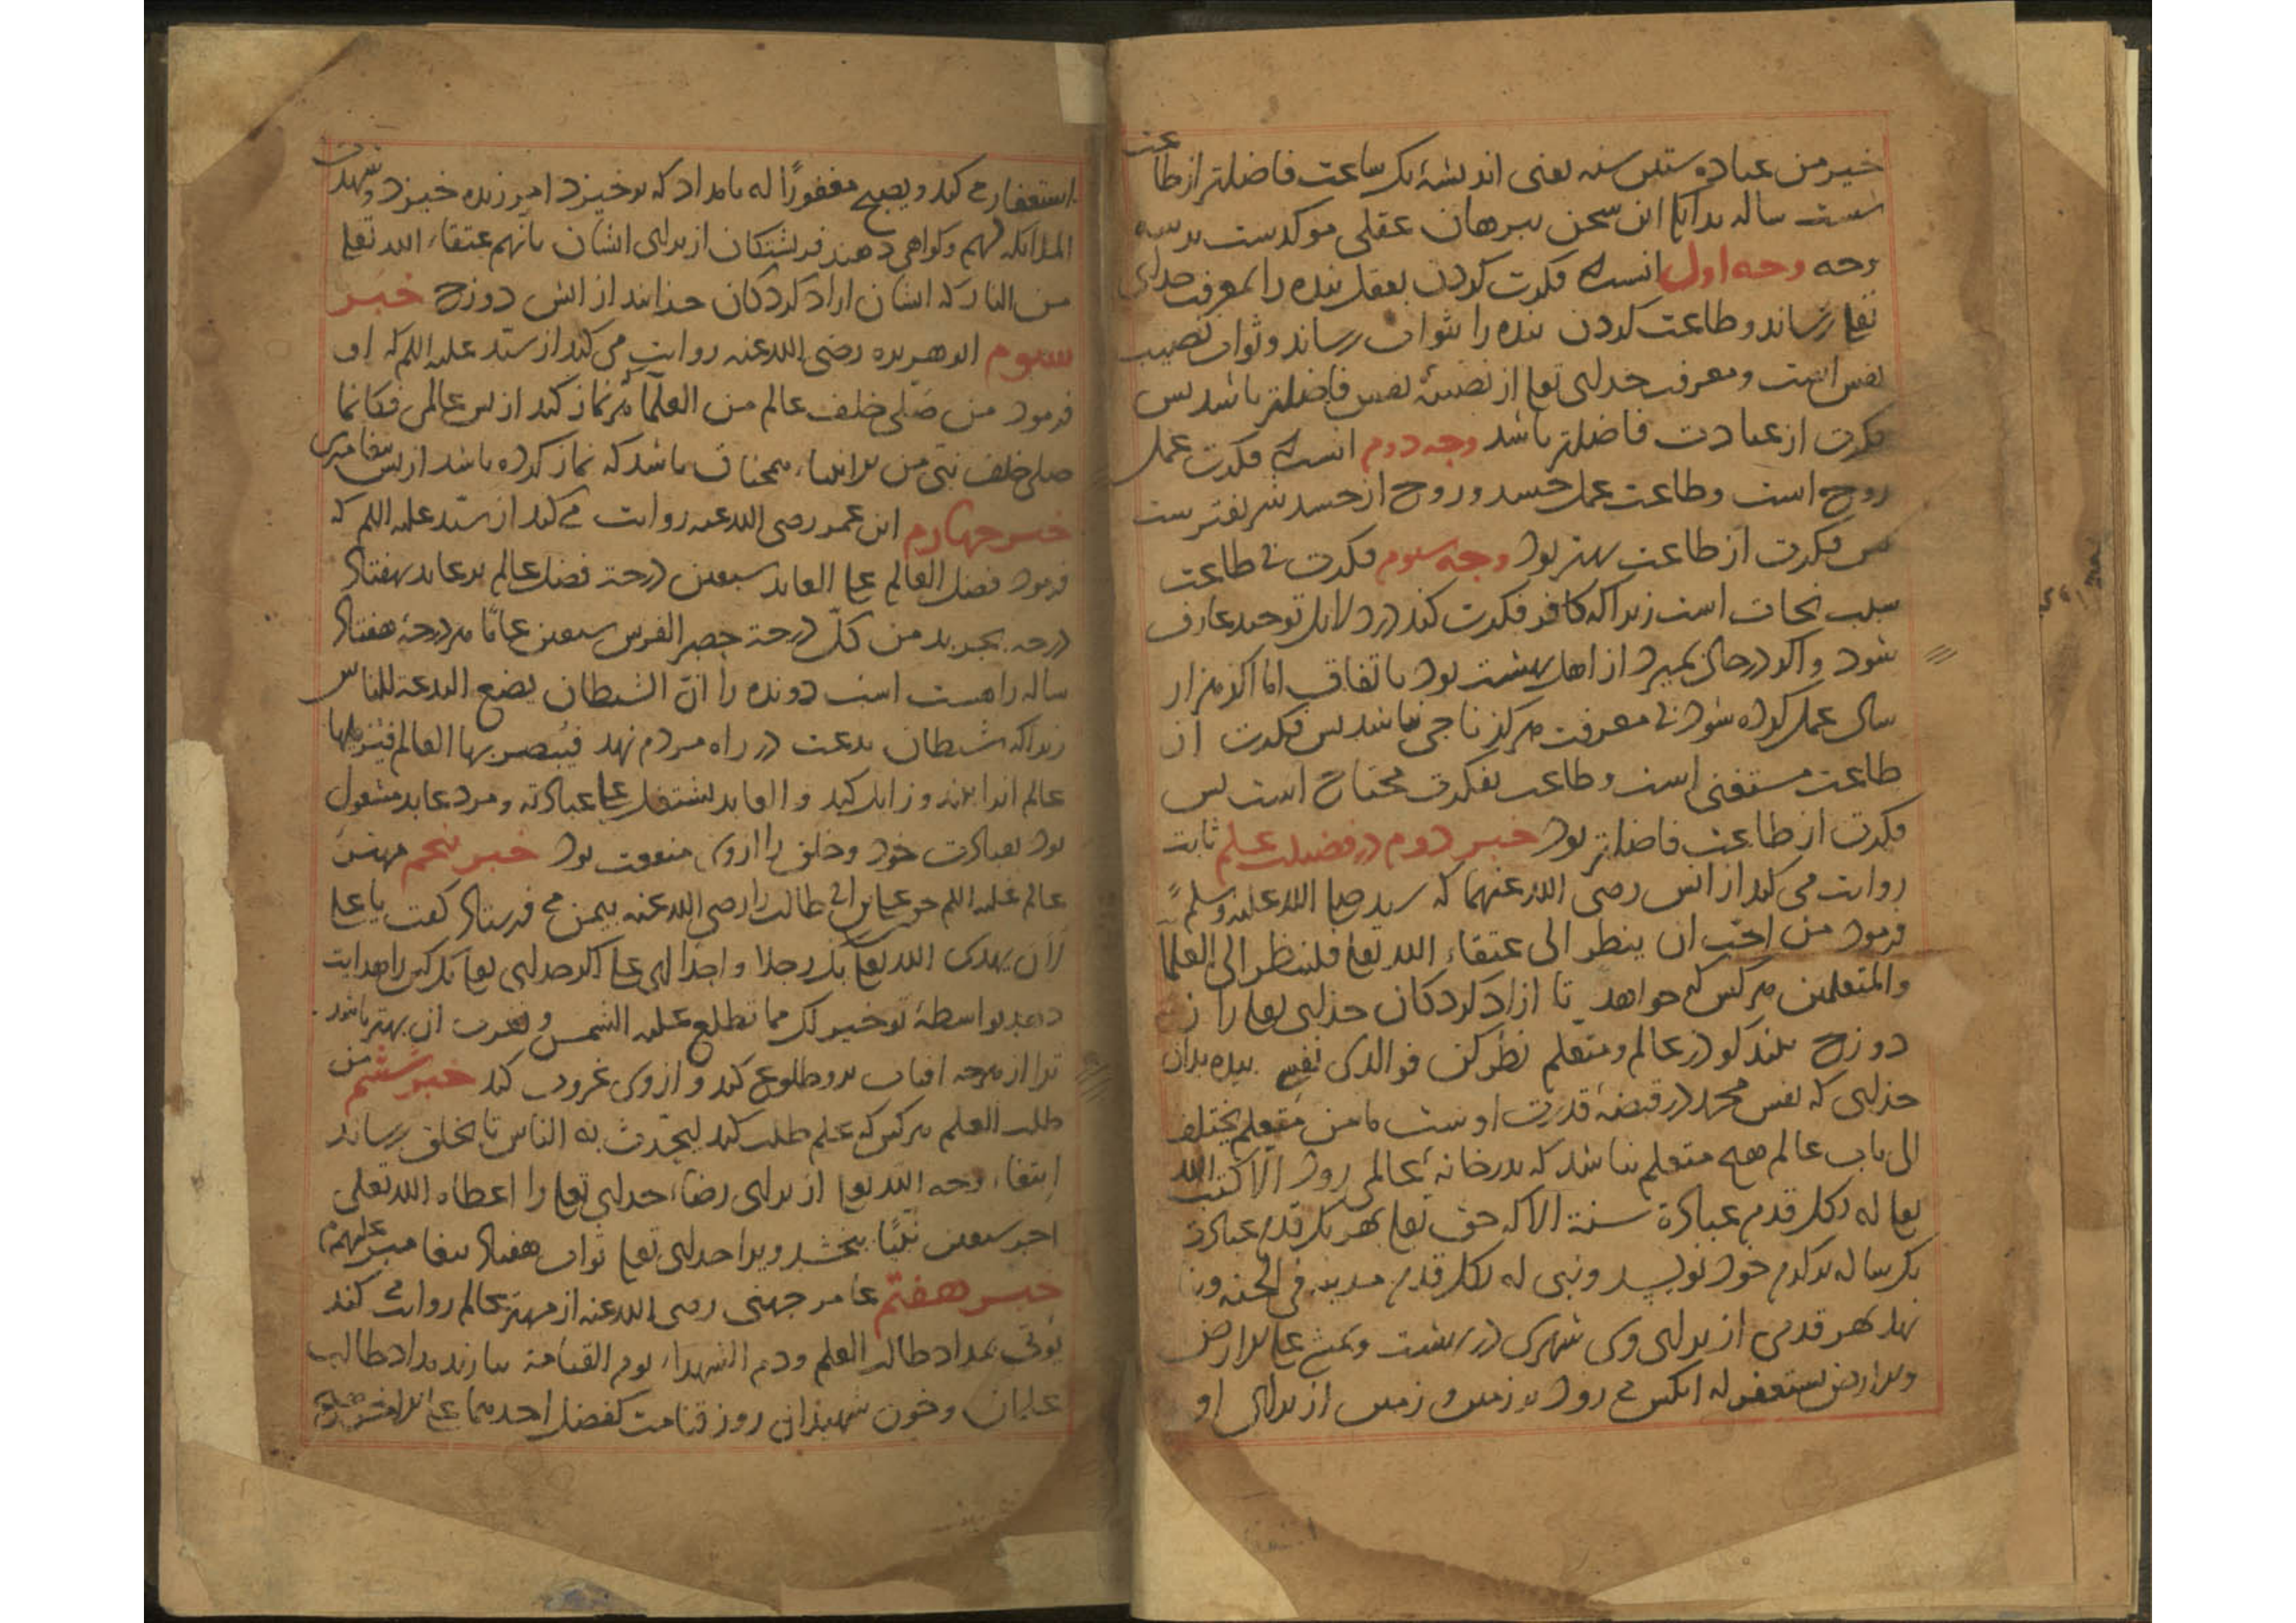 خیر من عبادة ستین سنه یعنی اندیشهٔ یک ساعت فاضلتر از طاعت
شست ساله بدانک این سخن ببرهان عقلی موکدست بر سه
وجه وجه اول انست که فکرت کردن بعقل بنده را بمعرفت خدای
تعا رساند و طاعت کردن بنده را بثواب رساند و ثواب نصیب
نفس است و معرفت خدای تعا از نصیبهٔ نفس فاضلتر باشد بس
فکرت از عبادت فاضلتر باشد وجه دوم انست که فکرت عمل
روح است و طاعت عمل جسد و روح از جسد شریفترست
بس فکرت از طاعت بهتر بود وجه سوم فکرت بی طاعت
سبب نجات است زیرا که کافر فکرت کند در دلایل توحید عارف
شود و اکر در حال بمیرد از اهل بهشت بود باتفاق اما اکر هزار
سال عمل کرده شود بی معرفت هرکز ناجی نباشد بس فکرت از
طاعت مستغنی است و طاعت بفکرت محتاج است بس
فکرت از طاعت فاضلتر بود خبر دوم در فضیلت علم ثابت
روایت می کند از انس رضی الله عنهما که سید صلی الله علیه وسلم
فرمود من احب ان ینظر الی عتقاء الله تعا فلینظر الی العلما
والمتعلمین هر کس که خواهد تا ازاد کردکان خدای تعا را از
دوزخ بیند کو در عالم و متعلم نظر کن فوالذی نفسی بیده بدان
خدای که نفس محمد در قبضهٔ قدرت اوست ما من متعلم یختلف
الی باب عالم هیچ متعلم نباشد که بدر خانهٔ عالمی رود الا کتب الله
تعا له بکل قدم عبادة سنة الا که حق تعا بهر یک قدم عبادت
یک ساله بدکدم خود نویسد وبنی له بکل قدم مدینه فی الجنه و بنا
نهد بهر قدمی از برای وی شهری در بهشت ویمشی علی الارض
والارض یستغفر له انکس می رود بر زمین و زمین از برای او
استغفار می کند ویصبح مغفورًا له بامداد که برخیزد امرزیده خیزد وشهدت
الملائکه لهم وکواهی دهند فرشتکان از برای ایشان بانهم عتقاء الله تعا
من النار که ایشان ازاد کردکان خدایند از اتش دوزخ خبر
سیوم ابوهریره رضی الله عنه روایت می کند از سید علیه السلم که او
فرمود من صلی خلف عالم من العلما هر نماز کند از بس عالمی فکانما
صلی خلف نبی من الانبیاء همچناف باشد که نماز کرده باشد از بس بیغامبری
خبر چهارم ابن عمر رضی الله عنه روایت می کند از سید علیه السلم که
فرمود فضل العالم علی العابد سبعین درجة فضل عالم بر عابد بهفتاد
درجه بین کل درجة حضر الفرس سبعین عامًا هر درجهٔ هفتاد
ساله راهست اسب دونده را ان الشیطان یضع البدعة للناس
زیرا که شیطان بدعت در راه مردم نهد فیبصر بها العالم فیزیلها
عالم انرا بیند و زایل کند والعابد یشتغل علی عبادته ومرد عابد مشغول
بود بعبادت خود وخلق را از وی منفعت بود خبر بنجم مهتر
عالم علیه السلم چون علی بن ابی طالب را رضی الله عنه بیمن می فرستاد کفت یا علی
لان یهدی الله تعا بک رجلا واحدًا ای علی اکر خدای تعا یک کس را هدایت
دهد بواسطهٔ تو خیر لک مما تطلع علیه الشمس و تغرب ان بهتر باشد
ترا از هرچه افتاب برو طلوع کند و از وی غروب کند خبر ششم من
طلب العلم هر کس که علم طلب کند لیحدث به الناس تا بخلق رساند
ابتغاء وجه الله تعا از برای رضاء خدای تعا را اعطاه الله تعلی
اجر سبعین نبیًا ببخشد ویرا خدای تعا ثواب هفتاد بیغامبر علیهم
خبر هفتم عامر جهنی رضی الله عنه از مهتر عالم روایت کند
یوتی بمداد طالب العلم ودم الشهداء یوم القیامة بیارند مداد طالب
علمان وخون شهیدان روز قیامت کفضل احدهما علی الاخر